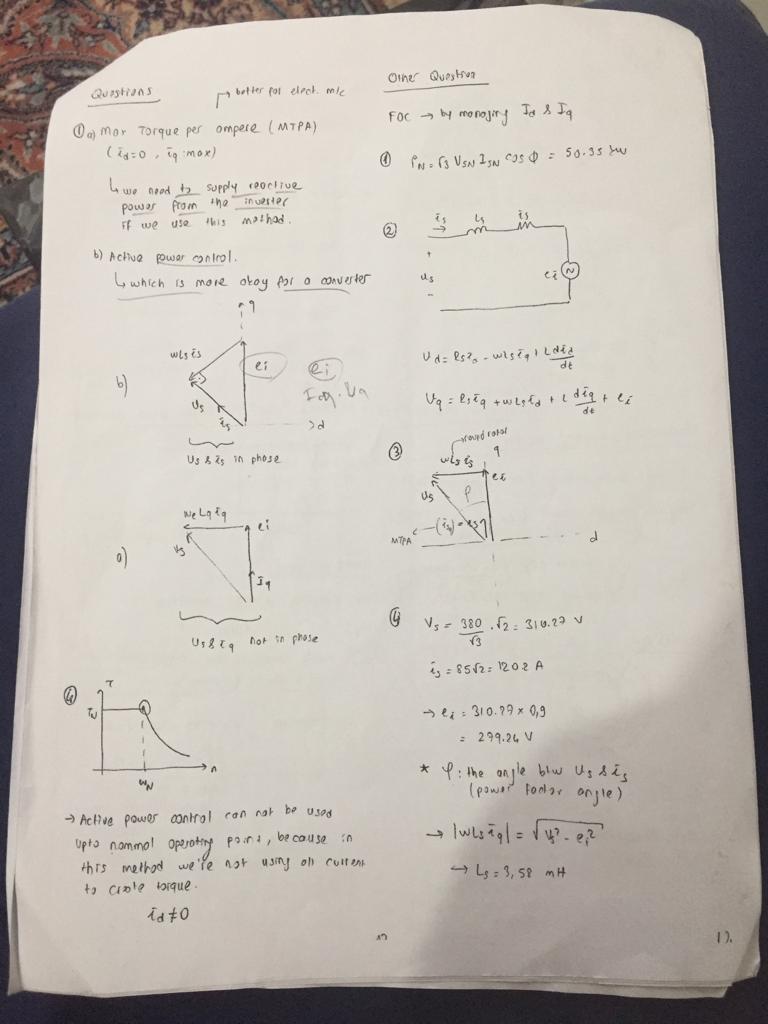 Questions
→ better for elect. m/c
① a) Max Torque per ampere (MTPA)
(id=0, iq:max)
↳ we need to supply reactive
power from the inverter
if we use this method.
b) Active power control.
↳ which is more okay for a converter
q
wLs is
ei
ei
b)
Us
is
d
Us & is in phase
We Lq iq
ei
Vs
a)
Iq
Us & iq not in phase
④
T
TN
n
wN
→ Active power control can not be used
upto nommal operating point, because in
this method we're not using all current
to create torque.
id≠0
Other Question
FOC → by managing Id & Iq
① PN = √3 VSN ISN cos Φ = 50.35 kW
②
is
Ls
+
us
-
ei
Vd = Rs id - wLs iq + L did/dt
Vq = Rs iq + wLs id + L diq/dt + ei
→ round rotor
③
wLs is
q
ei
Us
φ
MTPA
d
④ Vs = 380/√3 . √2 = 310.27 V
is = 85√2 = 120.2 A
→ ei = 310.27 x 0,9
= 279.24 V
* φ: the angle btw Us & is
(power factor angle)
→ |wLs iq| = √Vs² - ei²
→ Ls = 3,58 mH